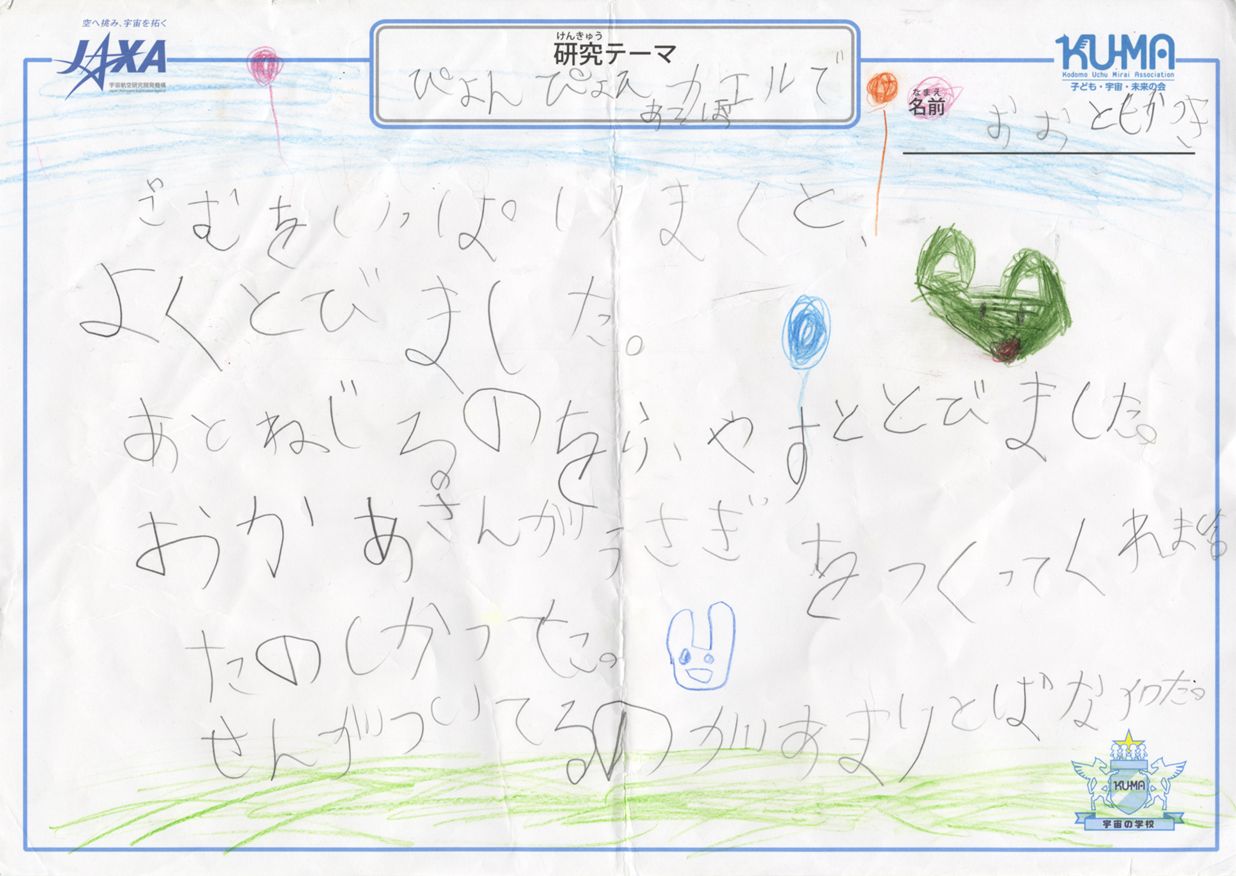 空へ挑み、宇宙を拓く
JAXA
宇宙航空研究開発機構
けんきゅう
研究テーマ
ぴょんぴょんカエルで
あそぼ
KU-MA
Kodomo Uchu Mirai Association
子ども・宇宙・未来の会
なまえ
名前
おおともかつき
ごむをいっぱいまくと、
よくとびました。
あとねじるのをふやすととびました。
おかあさんがうさぎをつくってくれま
たのしかった。
せんがついてるのがあまりとばな
KU-MA
宇宙の学校